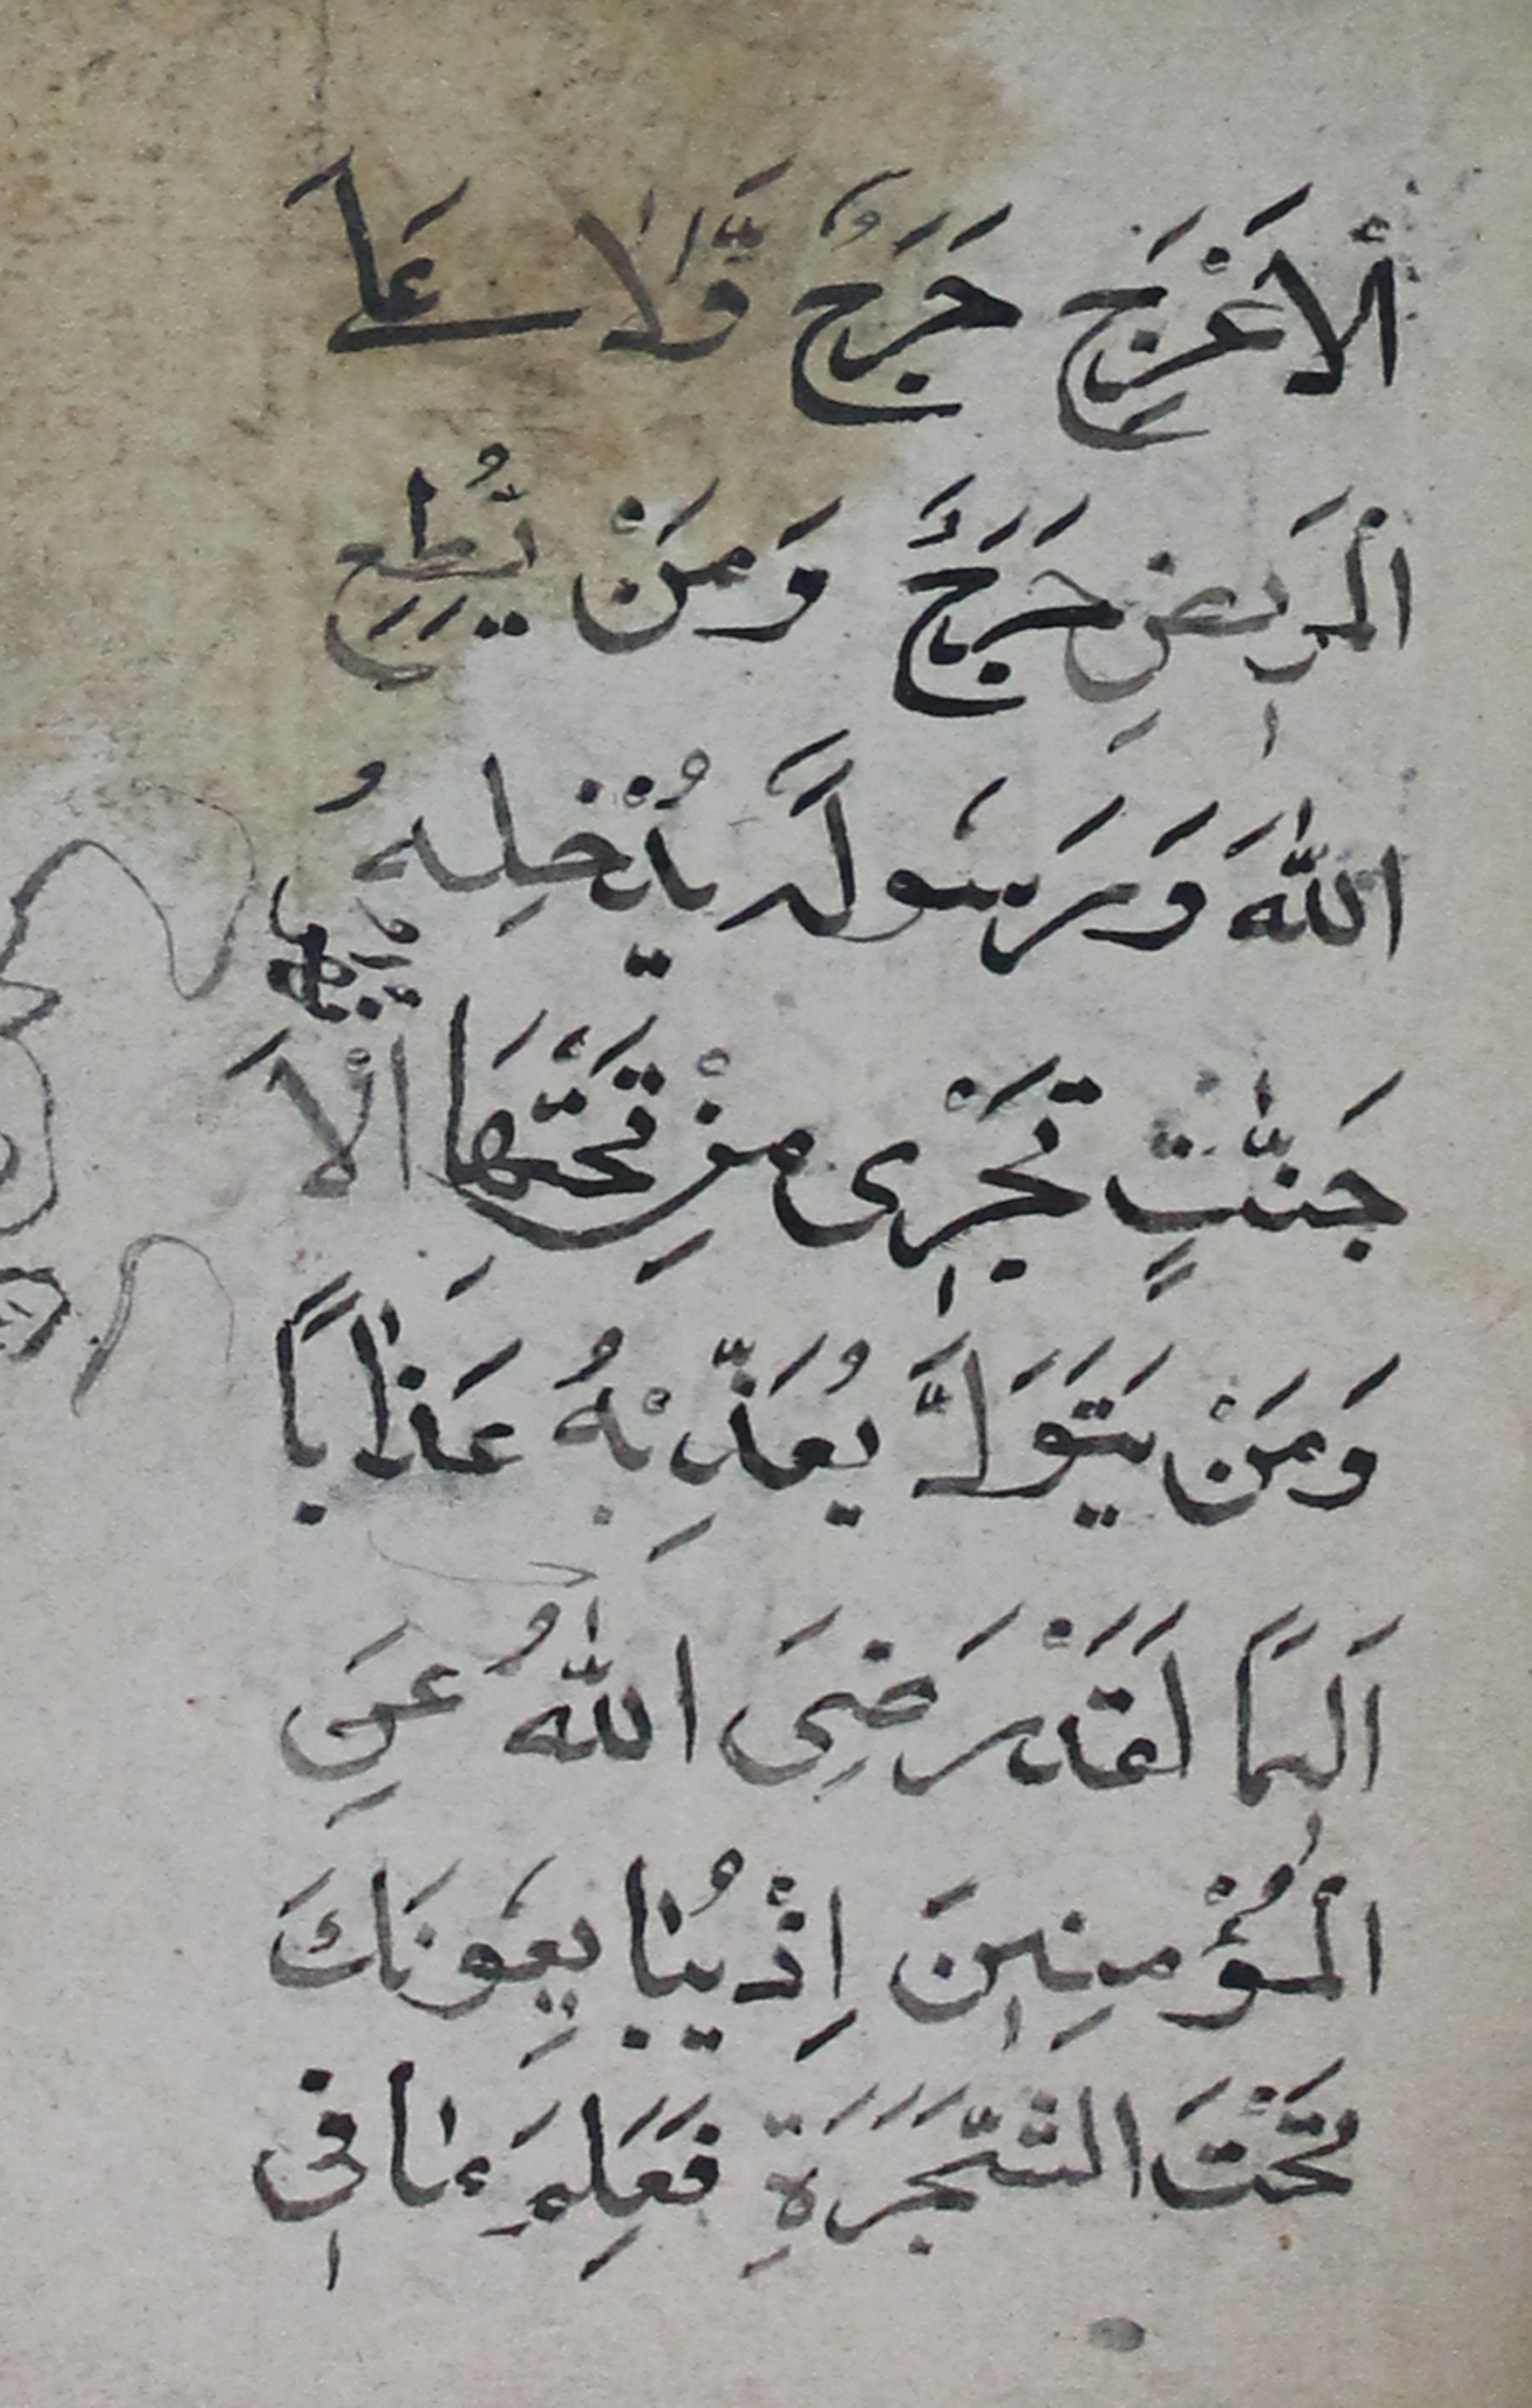 اْلاَعْرَجِ حَرَجٌ وَّلَا عَلَى
الْمَرِيضِ حَرَجٌ وَمَنْ يُّطِعِ
اللّٰهَ وَرَسُولَهُ يُدْخِلْهُ
جَنّٰتٍ تَجْرِى مِنْ تَحْتِهَا اْلاَ
وَمَنْ يَتَوَلَّ يُعَذِّبْهُ عَذَاباً
اَلِيمًا لَقَدْ رَضِىَ اللّٰهُ عَنِ
الْمُؤْمِنِينَ اِذْ يُبَايِعُونَكَ
تَحْتَ الشَّجَرَةِ فَعَلِمَ مَا فِى